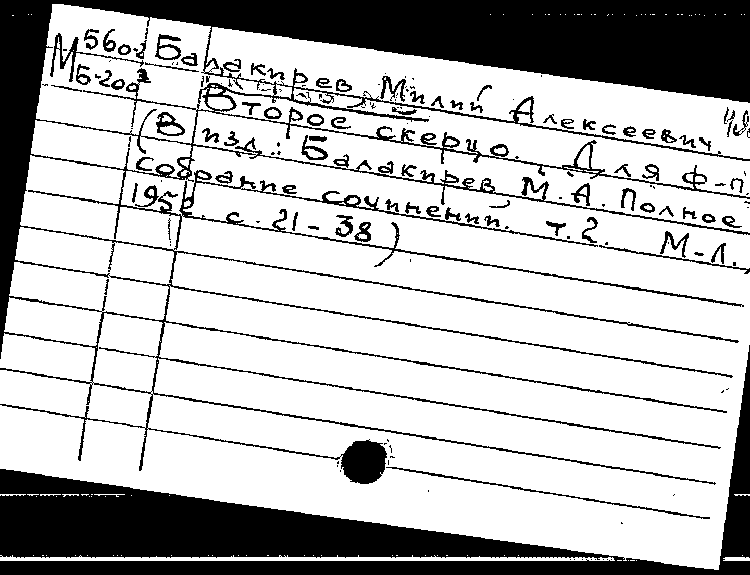 М 560-2 Балакирев, Милий Алексеевич.
Б-200 Второе скерцо. Для ф-п.
(В изд.: Балакирев, М. А. Полное
собрание сочинений. т. 2. М-Л.,
195 с. 21-38)